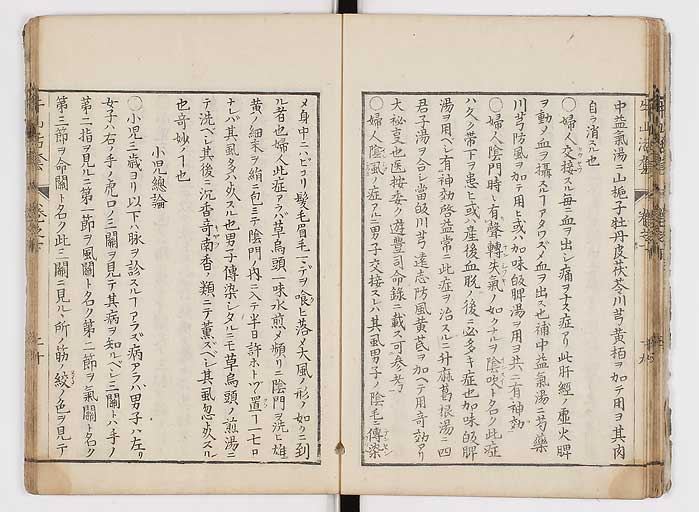 中益氣湯ニ山梔子牡丹皮茯苓川芎黄栢ヲ加テ用ヨ其肉
自ラ消スル也
〇婦人交接スル毎ニ血ヲ出シ痛ヲナス症アリ此肝經ノ虚火脾
ヲ動メ血ヲ攝スルアタワズメ血ヲ出ス也補中益氣湯ニ芍藥
川芎防風ヲ加テ用ヒ或ハ加味皈脾湯ヲ用ヨ共ニ有神効
〇婦人陰門時々有聲轉失氣ノ如クナルヲ陰吹ト名ク此症
ハ久ク帶下ヲ患ヒ或ハ産後血脱ノ後ニ必多キ症也加味皈脾
湯ヲ用ベシ有神効啓益常ニ此症ヲ治スルニ升麻葛根湯ニ四
君子湯ヲ合シ當皈川芎遠志防風黄芪ヲ加ヘテ用奇効アリ
大秘叓也医按委ク遊豊司命錄ニ載ス可参考
〇婦人陰虱ノ症アルニ男子交接スレハ其虱男子ノ陰毛ニ傳染
メ身中ニハビコリ髪毛眉毛マデヲ喰ヒ落メ大風ノ形ノ如クニ到
ル者也婦人此症アラバ草烏頭一味水煎メ頻リニ陰門ヲ洗ヒ雄
黄ノ細末ヲ絹ニ包ミテ陰門ノ内ニ入テ半日許ホトヅヽ置一七日
ナレバ其虱多ハ死スル也男子傳染シタルニモ草烏頭ノ煎湯ニ
テ洗ベシ其後ニ沉香奇南香ノ類ニテ薫スベシ其虱忽死スル
也奇妙ノ一也
小児總論
〇小児三歳ヨリ以下ハ脉ヲ診スルアラズ病アラハ男子ハ左リ
女子ハ右ノ手ノ虎口ノ三關ヲ見テ其病ヲ知ルベシ三關トハ手ノ
第二指ヲ見ルニ第一節ヲ風關ト名ク第二節ヲ氣關ト名ク
第三節ヲ命關ト名ク此三關ニ見ルヽ所ノ筋ノ紋ノ色ヲ見テ